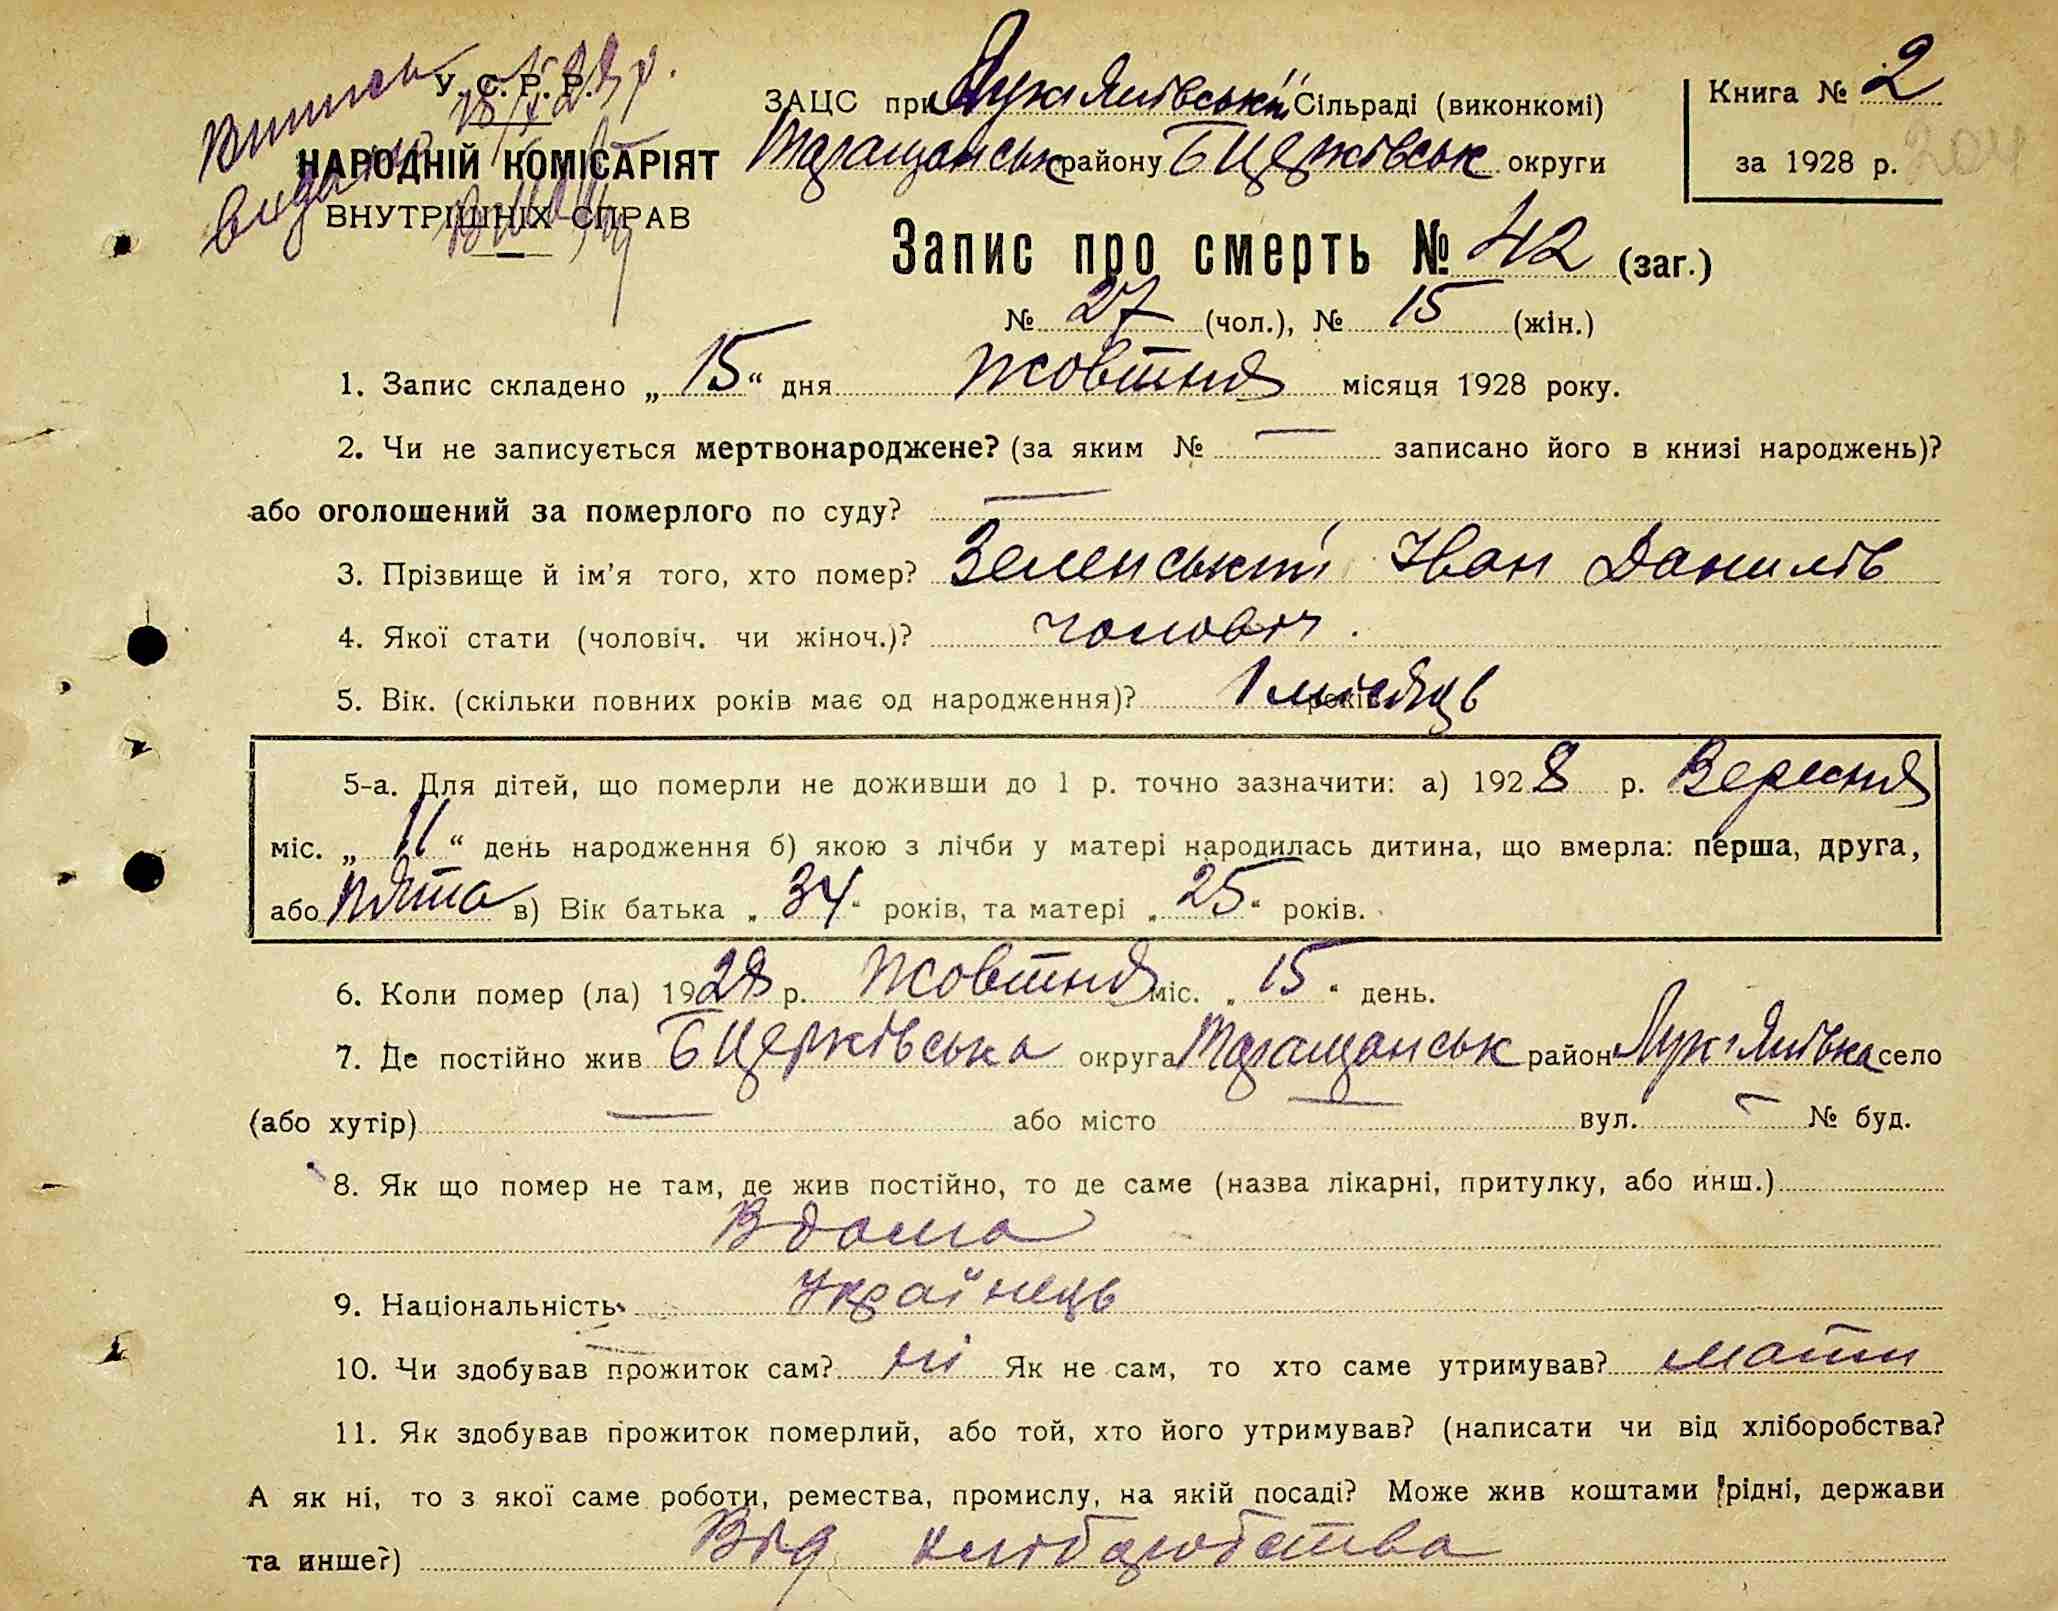 Випись У. С. Р. Р.
видано
НАРОДНІЙ КОМІСАРІЯТ
ВНУТРІШНІХ СПРАВ
ЗАЦС при Лук'янівській Сільраді (виконкомі)
Таращанськ району Б Церківськ округи
Книга № 2
за 1928 р. 204
Запис про смерть № 42 (заг.)
№ 27 (чол.), № 15 (жін.)
1. Запис складено „ 15 “ дня Жовтня місяця 1928 року.
2. Чи не записується мертвонароджене? (за яким № — записано його в книзі народжень)?
або оголошений за померлого по суду? —
3. Прізвище й ім'я того, хто помер? Зеленський Іван Данилів
4. Якої стати (чоловіч. чи жіноч.)? чоловіч.
5. Вік. (скільки повних років має од народження)? 1 місяць років
5-а. Для дітей, що померли не доживши до 1 р. точно зазначити: а) 1928 р. Вересня
міс. „ 11 “ день народження б) якою з лічби у матері народилась дитина, що вмерла: перша, друга,
або пята в) Вік батька „ 34 “ років, та матері „ 25 “ років.
6. Коли помер (ла) 1928 р. Жовтня міс. „ 15 “ день.
7. Де постійно жив Б Церківська округа Таращанськ район Лук'янівка село
(або хутір) — або місто — вул. — № буд.
8. Як що помер не там, де жив постійно, то де саме (назва лікарні, притулку, або инш.)
Вдома
9. Національність Українець
10. Чи здобував прожиток сам? ні Як не сам, то хто саме утримував? мати
11. Як здобував прожиток померлий, або той, хто його утримував? (написати чи від хліборобства?
А як ні, то з якої саме роботи, ремества, промислу, на якій посаді? Може жив коштами рідні, держави
та инше?) Від хліборобства